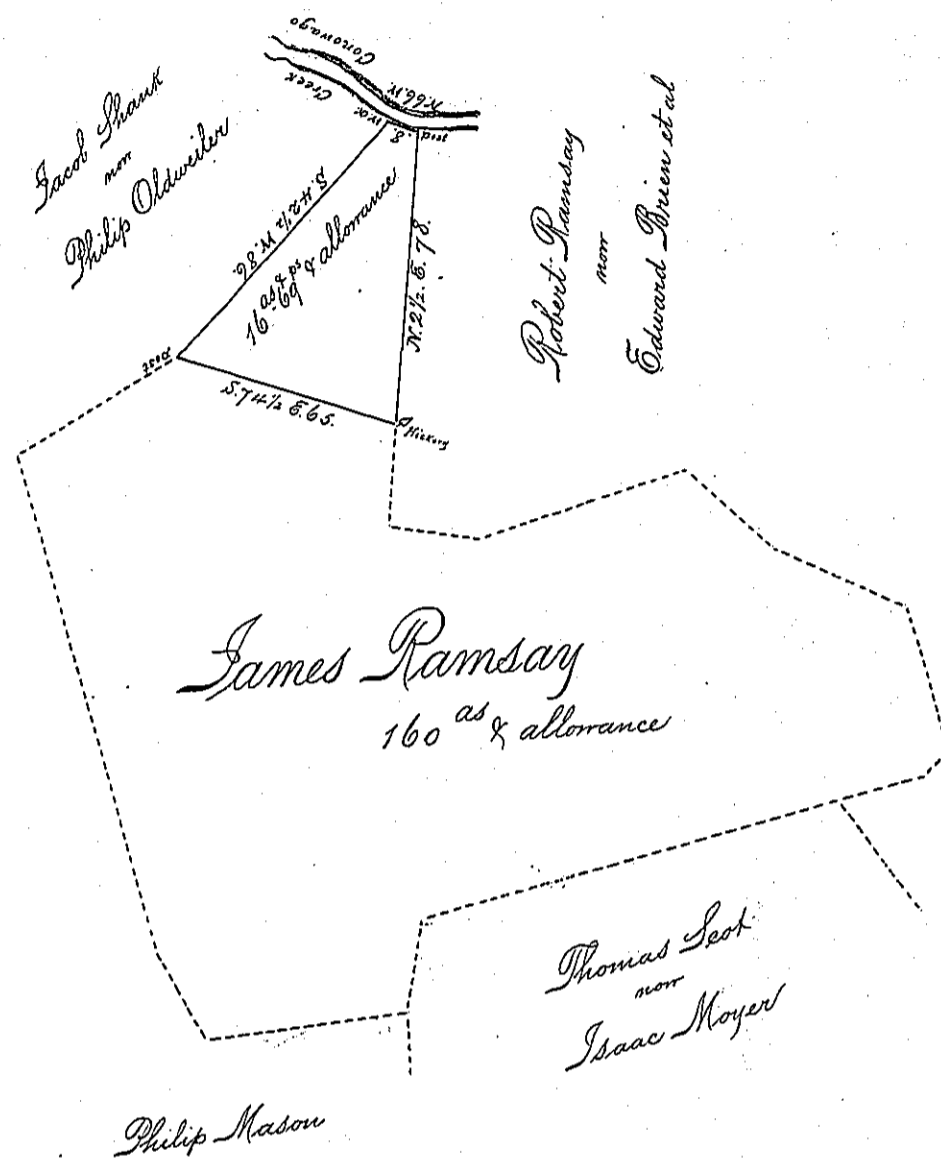 Conowago
Creek
N. 66. W.
8.
post
Jacob Shank
now
Philip Oldweiler
S. 42 1/2 W. 86.
16 as - 69 ps & allowance
N. 2 1/2. E. 78.
Robert Ramsay
now
Edward Brien et al
Post
S. 74 1/2 E. 65.
Hickory
James Ramsay
160 as & allowance
Thomas Scot
now
Isaac Moyer
Philip Mason